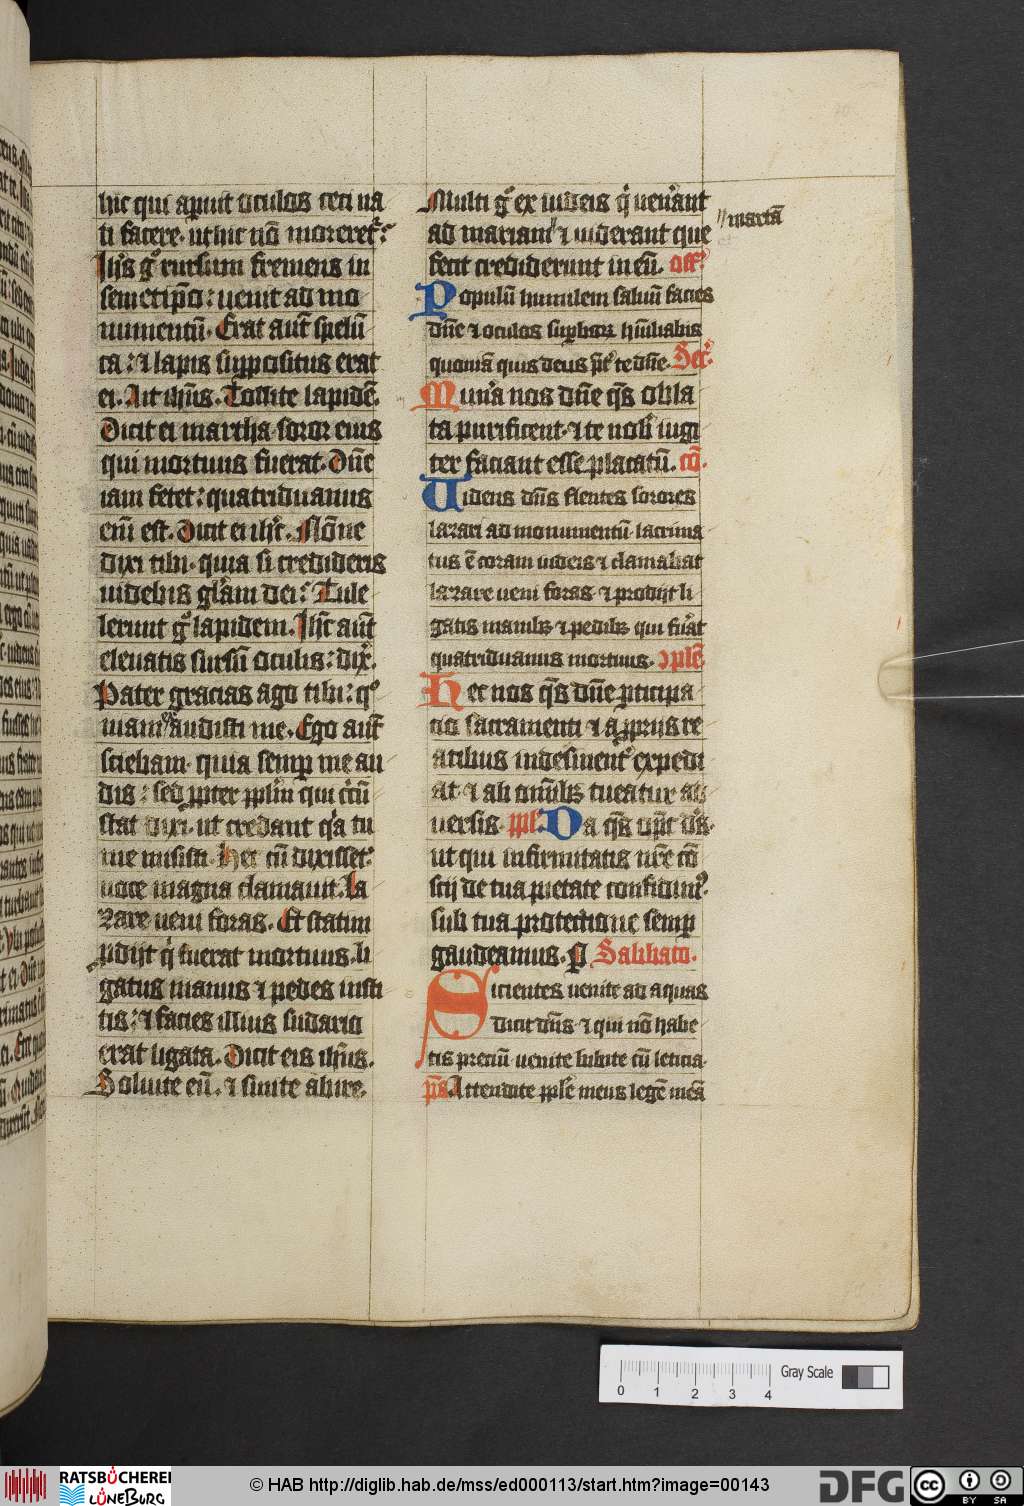 hic qui aperuit oculos ceci na
ti facere. ut hic nō moreret᷑?
Ihs̄ gͦ rursum fremens in
semetip̄o: uenit ad mo
numentū. Erat aut̄ spelū
ca: ⁊ lapis supp̱ositus erat
ei. Ait ihūs. Tollite lapidē.
Dicit ei martha soror eius
qui mortuus fuerat. Dn̄e
iam fetet: quatriduanus
enī est. Dicit ei ihs̄. Nōne
dixi tibi. quia si credideris
uidebis glām dei? Tule
lerunt gͦ lapidem. Ihs̄ aut̄
eleuatis sursū oculis: dix̄.
Pater gracias ago tibi: qͦ
niam audisti me. Ego aut̄
sciebam. quia semꝑ me au
dis: sed ꝓpter pplm̄ qui c̄cū
stat dixi. ut credant qͥa tu
me misisti. Hec cū dixisset:
uoce magna clamauit. La
zare ueni foras. Et statim
ꝓdijt qͥ fuerat mortuus. li
gatus manus ⁊ pedes insti
tis: ⁊ facies illius sudario
erat ligata. Dicit eis ihūs.
Soluite eū. ⁊ sinite abire.
Multi gͦ ex iudeis qͥ uen̄ant
ad mariam // ⁊ uiderant que
// martā
fecit crediderunt in eū. off̄.
Populū humilem saluū facies
dn̄e ⁊ oculos suꝑboꝝ hūiliabis
quoniā quis deus p̄t̄ te dn̄e. Secr̄.
Mun̄a nos dn̄e qs̄ obla
ta purificent. ⁊ te nob̄ iugi
ter faciant esse placatū. cō.
Videns dn̄s flentes sorores
lazari ad monumentū. lacrima
tus ē coram iudeis ⁊ clamabat
lazare ueni foras. ⁊ prodijt li
gatis manibꝫ ⁊ pedibꝫ qui fūat
quatriduanus mortuus. ꝯplē.
Hec nos qs̄ dn̄e ꝑticipa
cio sacramenti ⁊ a ꝓprijs re
atibus indesinent᷑ expedi
at. ⁊ ab omībꝫ tueatur ad
uersis. ppl̄. Da qs̄ om̄pt̄ ds̄.
ut qui infirmitatis nr̄e cō
scij de tua pietate confidimꝰ.
sub tua protectione semꝑ
gaudeamus. ꝑ Sabbato.
Sicientes uenite ad aquas
dicit dn̄s. ⁊ qui nō habe
tis preciū uenite bibite cū leticia.
ps̄. Attendite pple meus legē meā
0 1 2 3 4
Gray Scale
RATSBÜCHEREI
LÜNEBURG
© HAB http://diglib.hab.de/mss/ed000113/start.htm?image=00143
DFG
cc BY SA